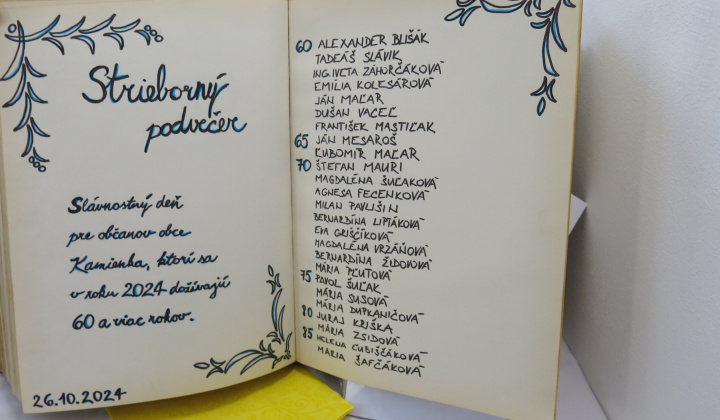 Strieborný
podvečer
Slávnostný deň
pre občanov obce
Kamienka, ktorí sa
v roku 2024 dožívajú
60 a viac rokov.
26.10.2024
60 ALEXANDER BLIŠÁK
TADEÁŠ SLÁVIK
ING.IVETA ZÁHORČÁKOVÁ
EMILIA KOLESÁROVÁ
JÁN MAĽAR
DUŠAN VACEĽ
FRANTIŠEK MASTIĽAK
65 JÁN MESAROŠ
ĽUBOMÍR MAĽAR
70 ŠTEFAN MAURI
MAGDALÉNA ŠUĽAKOVÁ
AGNESA FECENKOVÁ
MILAN PAVLIŠIN
BERNARDÍNA LIPTÁKOVÁ
EVA GRIŠČÍKOVÁ
MAGDALÉNA VRZÁŇOVÁ
BERNARDÍNA ŽIDOVOVÁ
MÁRIA PĽUTOVÁ
75 PAVOL ŠUĽAK
MÁRIA SUSOVÁ
MÁRIA DUFKANIČOVÁ
80 JURAJ KRIŠKA
MÁRIA ZSIDOVÁ
85 HELENA ĽUBIŠČÁKOVÁ
MARIA ŠAFČÁKOVÁ